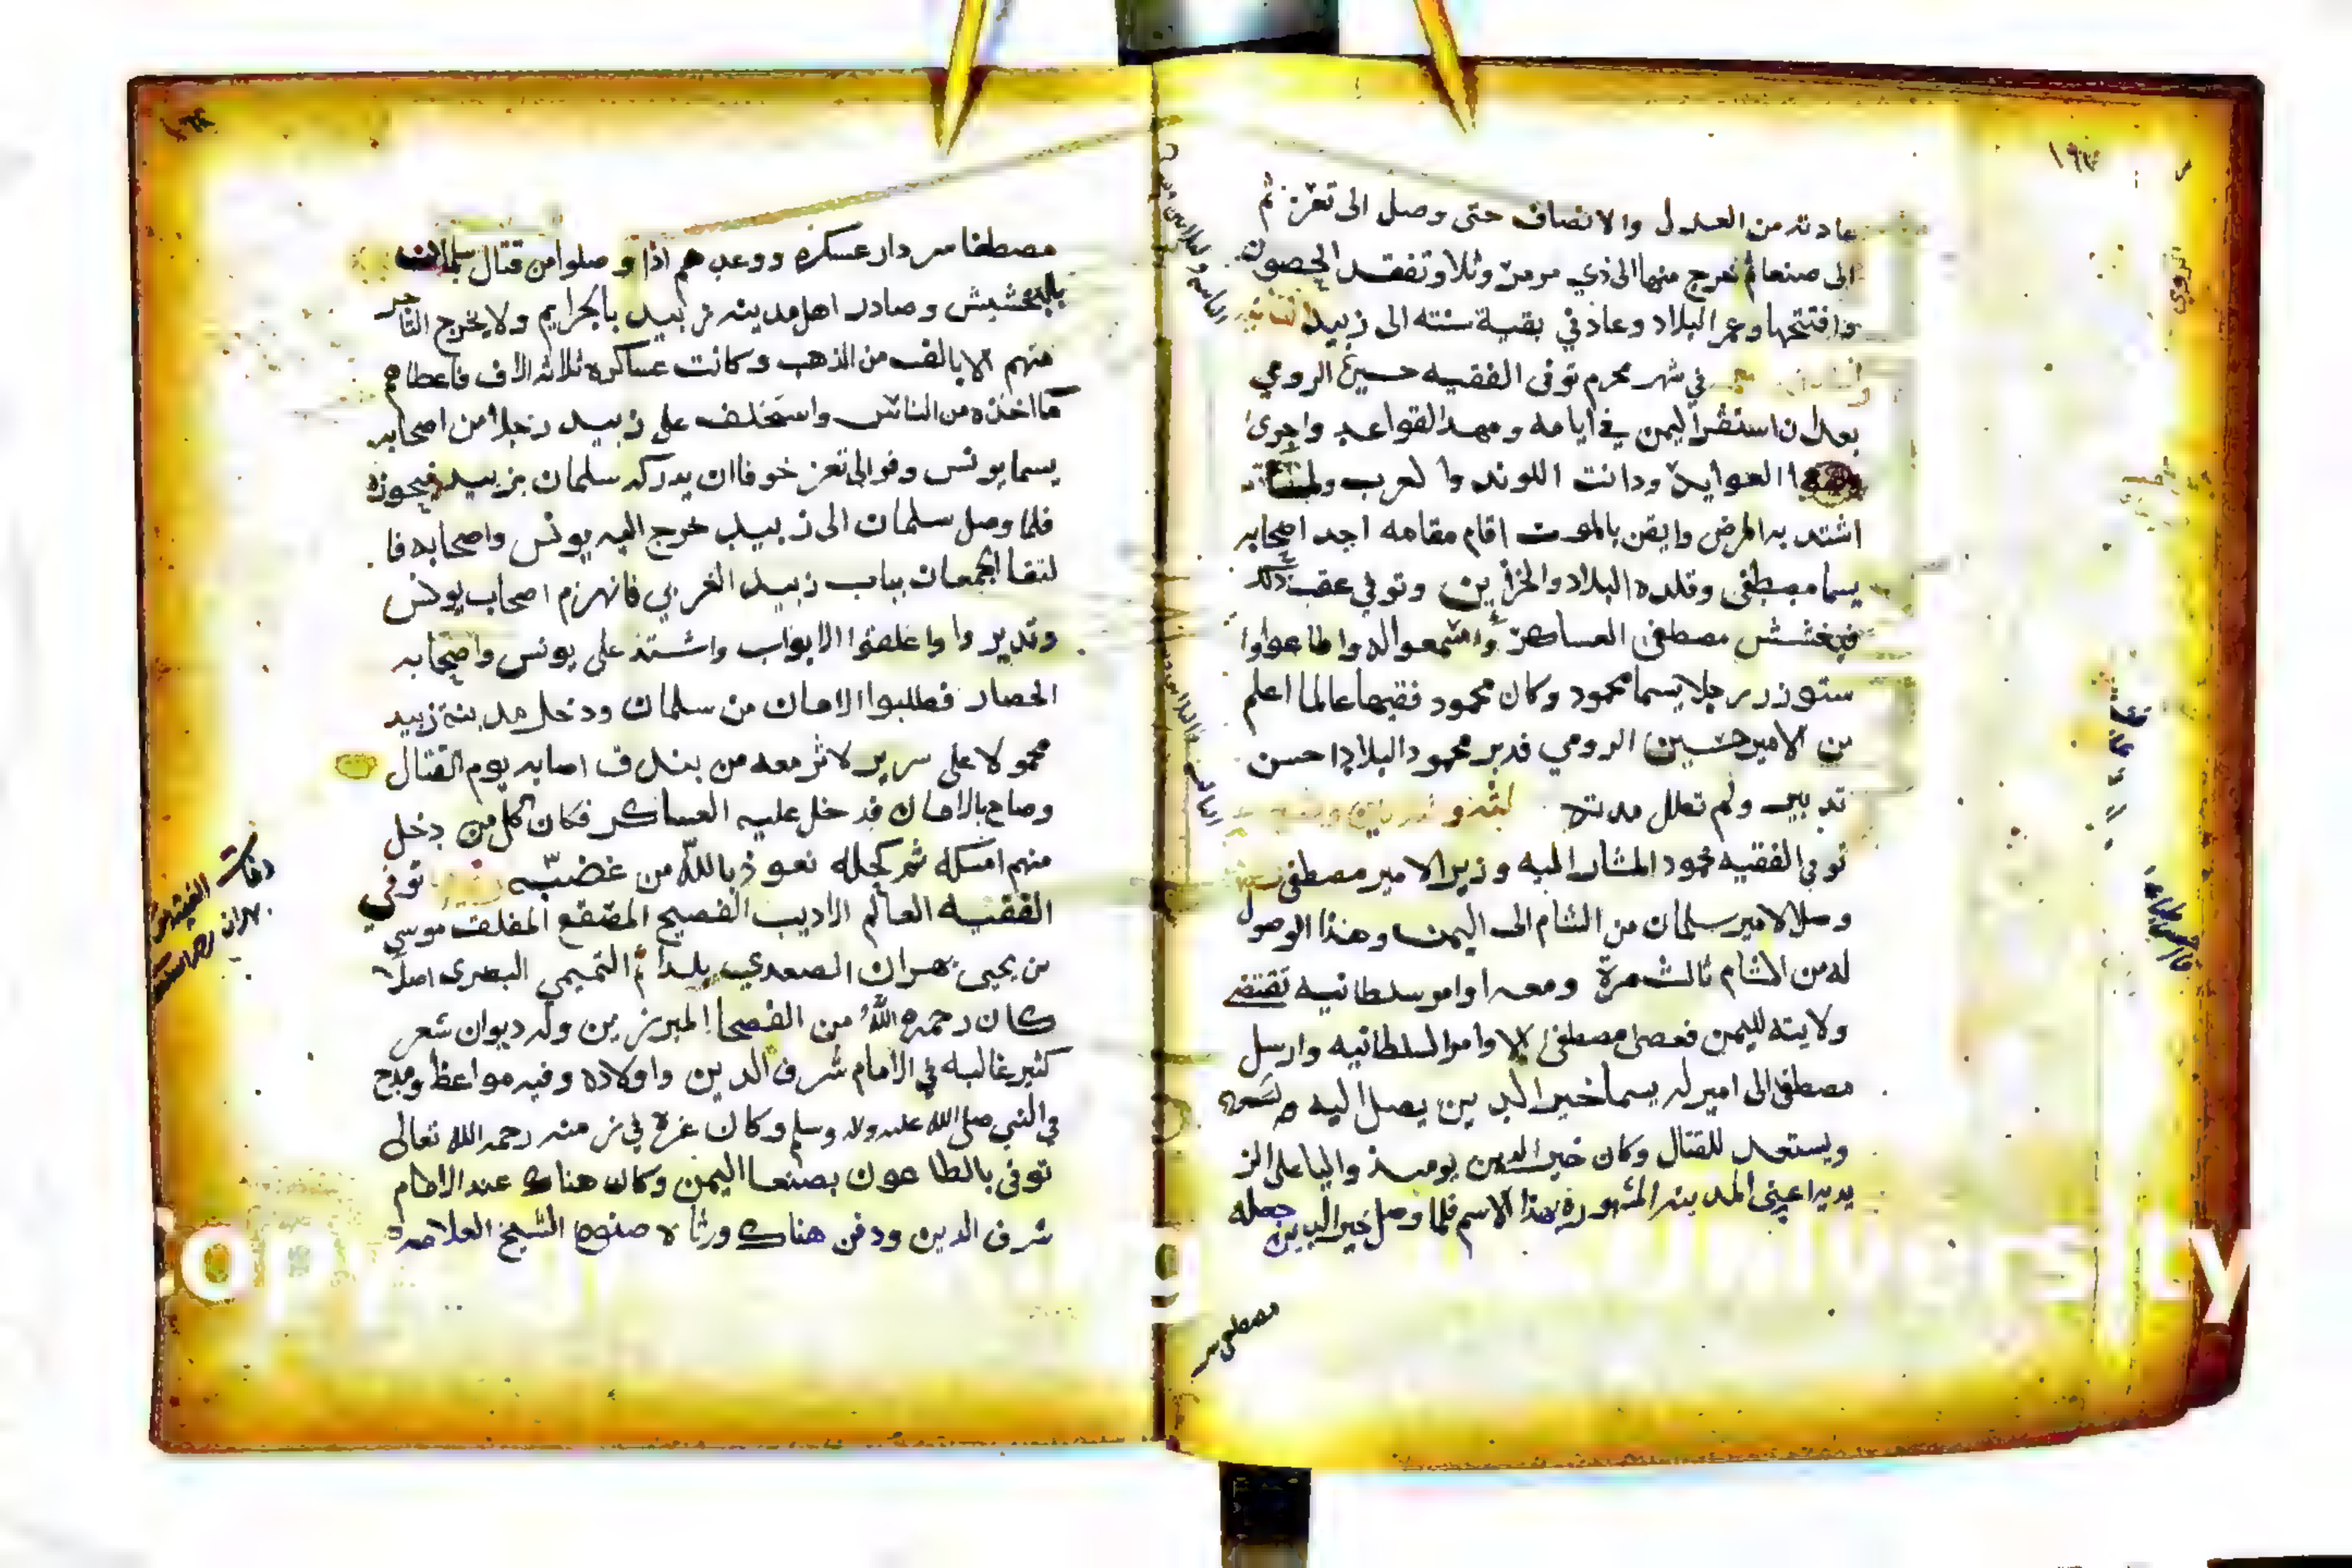 عادته من العدل والانصاف حتى وصل الى تعز ثم
الى صنعا ثم خرج منها الى ذي مرمر وثلا وتفقد الحصون
وافتتحها وعمر البلاد وعاد في بقية سنته الى زبيد
في شهر محرم توفى الفقيه حسين الرومي
بعد ان استقر اليمن في ايامه ومهد القواعد واجرى
العوايد ودانت اللوند والعرب ولما
اشتد به المرض وايقن بالموت اقام مقامه احد اصحابه
يسما مصطفى وقلده البلاد والخزاين وتوفي عقب ذلك
فبخشش مصطفى العساكر واسمعوا له واطاعوا وا
ستوزر رجلا يسما محمود وكان محمود فقيها عالما اعلم
من الامير حسين الرومي فدبر محمود البلاد احسن
تدبير ولم تطل مدته
توفي الفقيه محمود المشار اليه وزير الامير مصطفى
وصل الامير سلمان من الشام الى اليمن وهذا الوصول
له من الشام ثالث مرة ومعه اوامر سلطانيه تقتضي
ولايته لليمن فعصى مصطفى الاوامر السلطانيه وارسل
مصطفى الى امير له يسما خير الدين يصل اليه
ويستعد للقتال وكان خير الدين يوميذ واليا على الز
يديه اعني المدينه المشهورة بهذا الاسم فلما وصل خير الدين جعله
مصطفى
مصطفا سردار عسكره ووعدهم اذا وصلوا من قتال سلمان
بالبخشيش وصادر اهل مدينه زبيد بالجرايم ولا يخرج التاجر
منهم الا بالف من الذهب وكانت عساكره ثلاثه الاف فاعطاهم
ما اخذه من الناس واستخلف على زبيد رجلا من اصحابه
يسما يونس وفر الى تعز خوفا ان يدركه سلمان بزبيد
فلما وصل سلمان الى زبيد خرج اليه يونس واصحابه فا
لتقا الجمعان بباب زبيد الغربي فانهزم اصحاب يونس
وتديروا واغلقوا الابواب واشتد على يونس واصحابه
الحصار فطلبوا الامان من سلمان ودخل مدينة زبيد
محمولا على سرير لاثر معه من بندق اصابه يوم القتال
وصاح بالامان فدخل عليه العساكر فكان كل من دخل
منهم امسكه ثم كحله نعوذ بالله من غضبه توفي
الفقيه العالم الاديب الفصيح المصقع المفلق موسى
بن يحيى بهران الصعدي بلدا ثم التميمي البصري اصلا
كان رحمه الله من الفصحا المبرزين وله ديوان شعر
كثير غالبه في الامام شرف الدين واولاده وفيه مواعظ ومدح
في النبي صلى الله عليه واله وسلم وكان غرة في زمنه رحمه الله تعالى
توفى بالطاعون بصنعا اليمن وكان هناك عند الامام
شرف الدين ودفن هناك ورثاه صنوه الشيخ العلامه